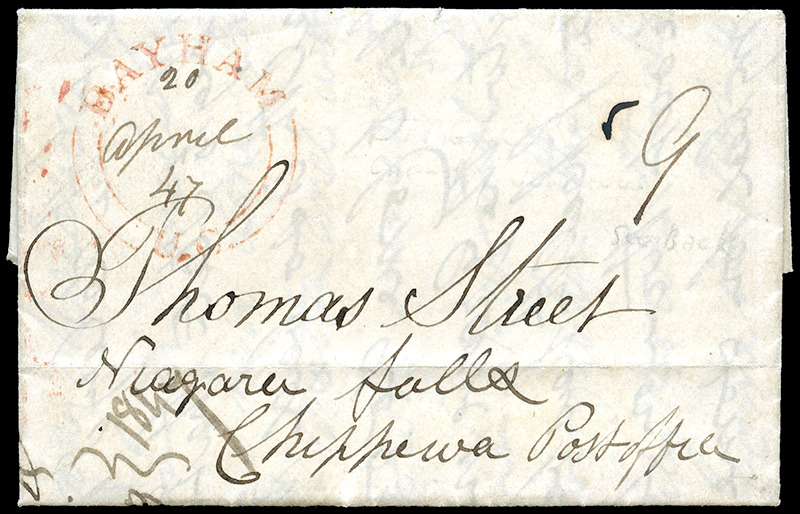 BAYHAM
20
April
47
U.C.
9
See Back
Thomas Street
Niagara falls
Chippewa Postoffice